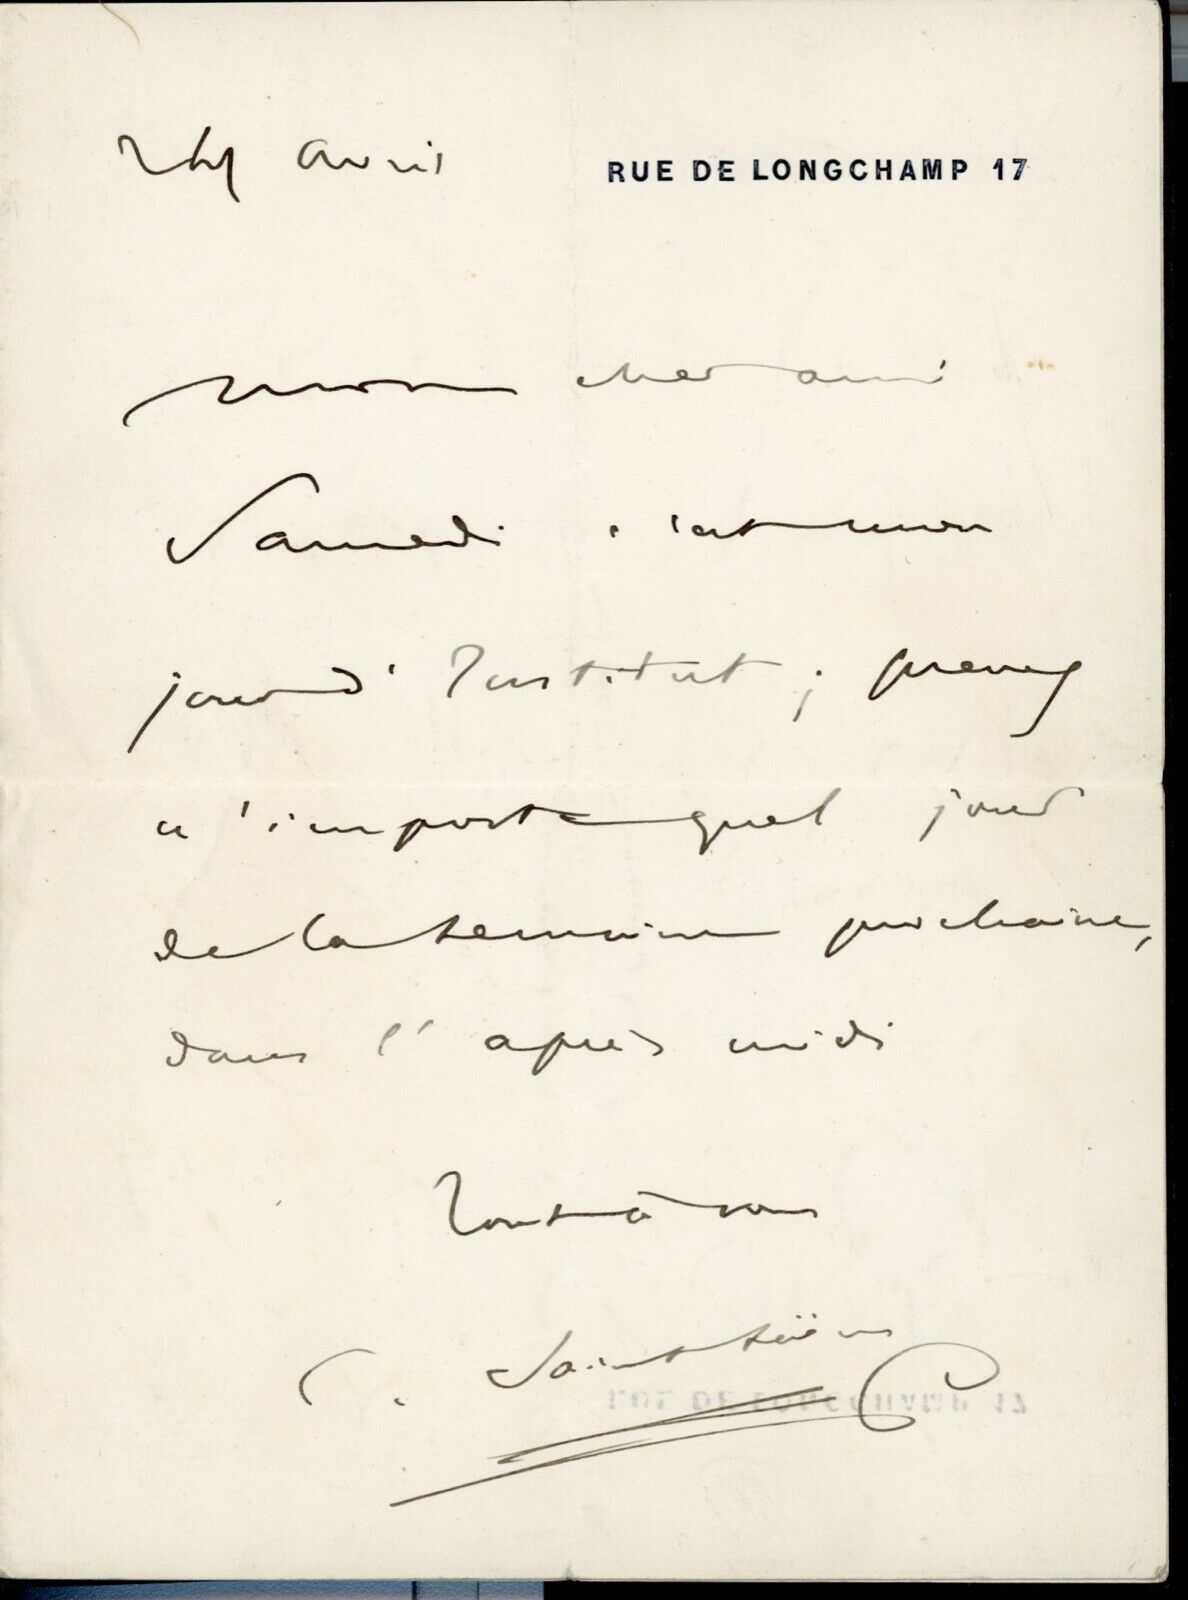 Avril
RUE DE LONGCHAMP 17
Mon cher ami
Samedi c'est mon
jour d'Institut ; prenez
n'importe quel jour
de la semaine prochaine,
dans l'après midi
Tout à vous
C. Saint-Saëns
RUE DE LONGCHAMP 17